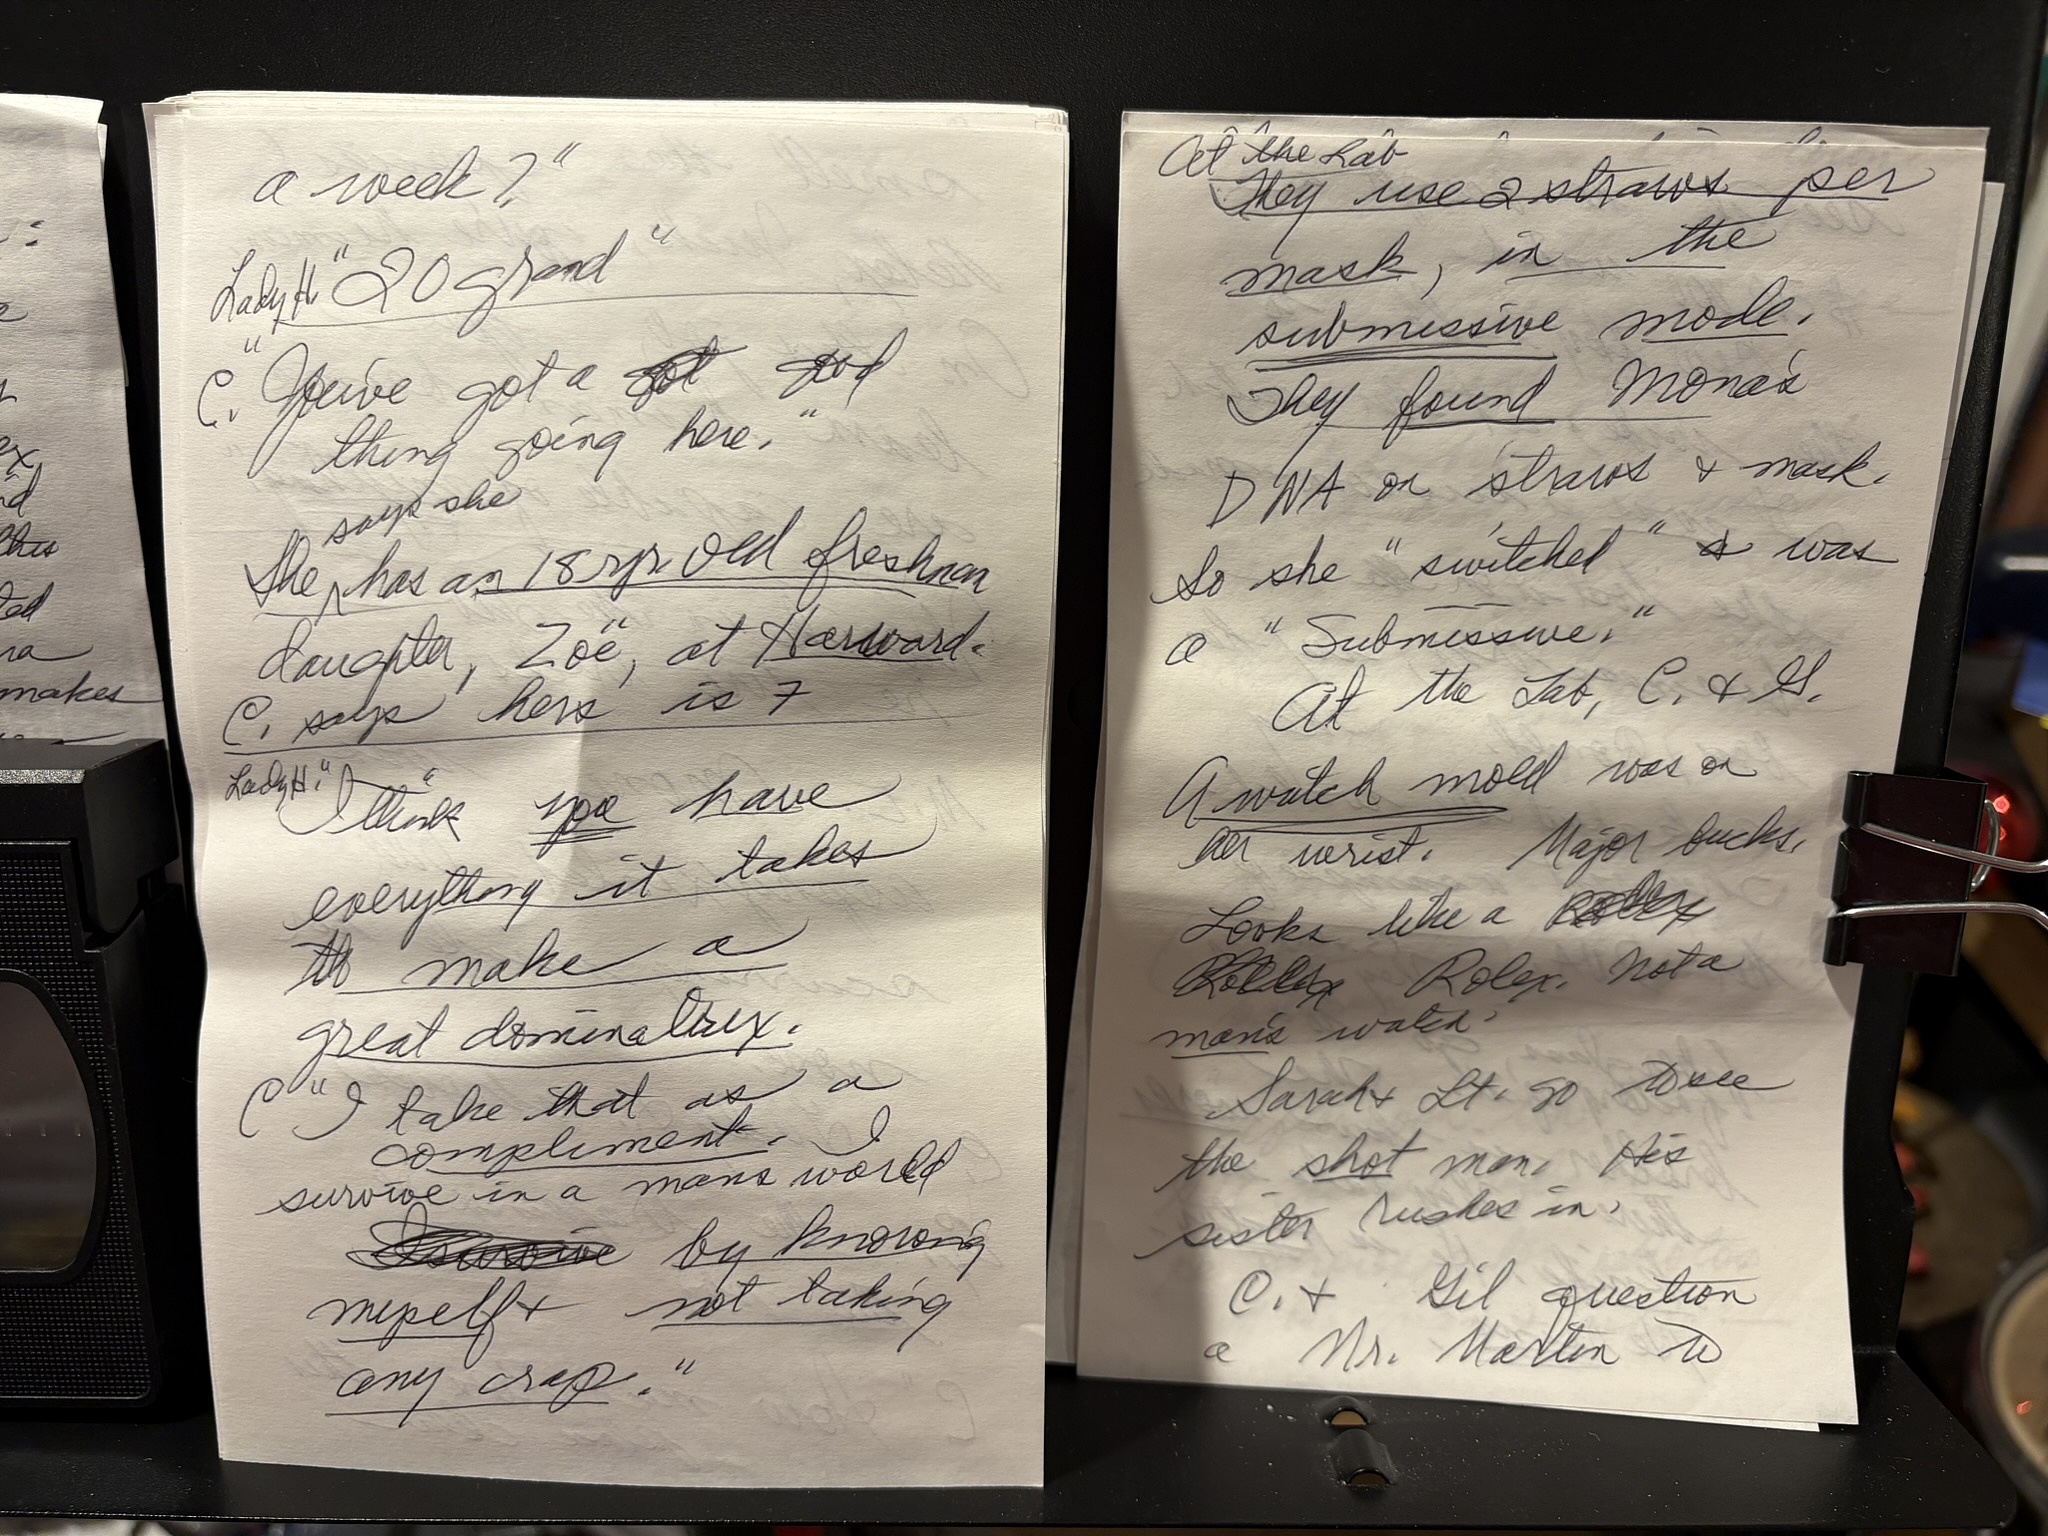 :
e
ex
nd
this
ted
na
makes
a week?"
Lady H. "20 grand"
C. "You've got a got good
thing going here."
says she
She has an 18 yr. old freshman
daughter, Zoë, at Harvard.
C. says hers is 7
Lady H. "I think you have
everything it takes
to make a
great dominatrix.
C "I take that as a
compliment. I
survive in a man's world
I survive by knowing
myself & not taking
any crap."
At the Lab
They use 2 straws per
mask, in the
submissive mode.
They found Mona's
DNA on straws & mask.
So she "switched" & was
a "Submissive."
At the Lab, C. & G.
A watch mold was on
her wrist. Major bucks.
Looks like a Rollex
Rollex Rolex. Not a
man's watch.
Sarah & Lt. go to see
the shot man. His
sister rushes in.
C. & Gil question
a Mr. Martin to